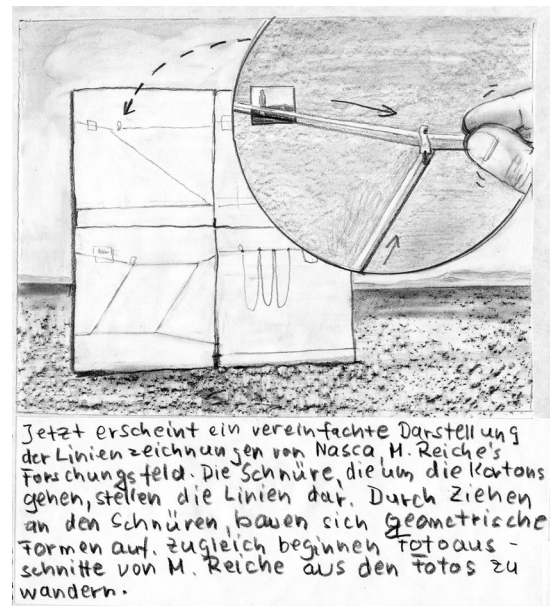 Jetzt erscheint ein vereinfachte Darstellung
der Linienzeichnungen von Nasca, M. Reiche's
Forschungsfeld. Die Schnüre, die um die Kartons
gehen, stellen die Linien dar. Durch Ziehen
an den Schnüren, bauen sich geometrische
Formen auf. Zugleich beginnen Fotoaus-
schnitte von M. Reiche aus den Fotos zu
wandern.